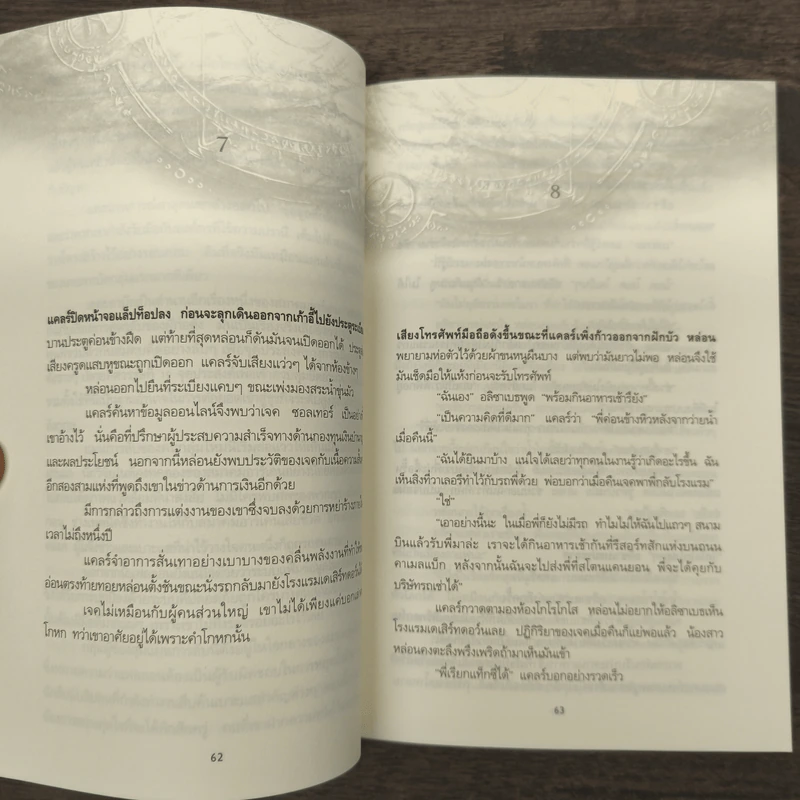 7
แคลร์ปิดหน้าจอแล็ปท็อปลง ก่อนจะลุกเดินออกจากเก้าอี้ไปยังประตูระเบียง
บานประตูค่อนข้างฝืด แต่ท้ายที่สุดหล่อนก็ดันมันจนเปิดออกได้
เสียงครูดแสบหูขณะถูกเปิดออก แคลร์จับเสียงแว่วๆ ได้จากห้องข้างๆ
หล่อนออกไปยืนที่ระเบียงแคบๆ ขณะเพ่งมองสระน้ำขุ่นมัว
แคลร์ค้นหาข้อมูลออนไลน์จึงพบว่าเจค ซอลเทอร์ เป็นอย่างที่
เขาอ้างไว้ นั่นคือที่ปรึกษาผู้ประสบความสำเร็จทางด้านกองทุนเงินบำนาญ
และผลประโยชน์ นอกจากนี้หล่อนยังพบประวัติของเจคกับเนื้อความสั้นๆ
อีกสองสามแห่งที่พูดถึงเขาในข่าวด้านการเงินอีกด้วย
มีการกล่าวถึงการแต่งงานของเขาซึ่งจบลงด้วยการหย่าร้างภายใน
เวลาไม่ถึงหนึ่งปี
แคลร์จำอาการสั่นเทาอย่างเบาบางของคลื่นพลังงานที่ทำให้ขน
อ่อนตรงท้ายทอยหล่อนตั้งชันขณะนั่งรถกลับมายังโรงแรมเดเสิร์ทดอว์นได้
เจคไม่เหมือนกับผู้คนส่วนใหญ่ เขาไม่ได้เพียงแค่บอกเล่าคำ
โกหก ทว่าเขาอาศัยอยู่ได้เพราะคำโกหกนั้น
62
8
เสียงโทรศัพท์มือถือดังขึ้นขณะที่แคลร์เพิ่งก้าวออกจากฝักบัว หล่อน
พยายามห่อตัวไว้ด้วยผ้าขนหนูผืนบาง แต่พบว่ามันยาวไม่พอ หล่อนจึงใช้
มันเช็ดมือให้แห้งก่อนจะรับโทรศัพท์
"ฉันเอง" อลิซาเบธพูด "พร้อมกินอาหารเช้ารึยัง"
"เป็นความคิดที่ดีมาก" แคลร์ว่า "พี่ค่อนข้างหิวหลังจากว่ายน้ำ
เมื่อคืนนี้"
"ฉันได้ยินมาบ้าง แน่ใจได้เลยว่าทุกคนในงานรู้ว่าเกิดอะไรขึ้น ฉัน
เห็นสิ่งที่วาเลอรีทำไว้กับรถพี่ด้วย พ่อบอกว่าเมื่อคืนเจคพาพี่กลับโรงแรม"
"ใช่"
"เอาอย่างนี้นะ ในเมื่อพี่ก็ยังไม่มีรถ ทำไมไม่ให้ฉันไปแถวๆ สนาม
บินแล้วรับพี่มาล่ะ เราจะได้กินอาหารเช้ากันที่รีสอร์ทสักแห่งบนถนน
คาเมลแบ็ก หลังจากนั้นฉันจะไปส่งพี่ที่สโตนแคนยอน พี่จะได้คุยกับ
บริษัทรถเช่าได้"
แคลร์กวาดตามองห้องโกโรโกโส หล่อนไม่อยากให้อลิซาเบธเห็น
โรงแรมเดเสิร์ทดอว์นเลย ปฏิกิริยาของเจคเมื่อคืนก็แย่พอแล้ว น้องสาว
หล่อนคงตะลึงพรึงเพริดถ้ามาเห็นมันเข้า
"พี่เรียกแท็กซี่ได้" แคลร์บอกอย่างรวดเร็ว
63